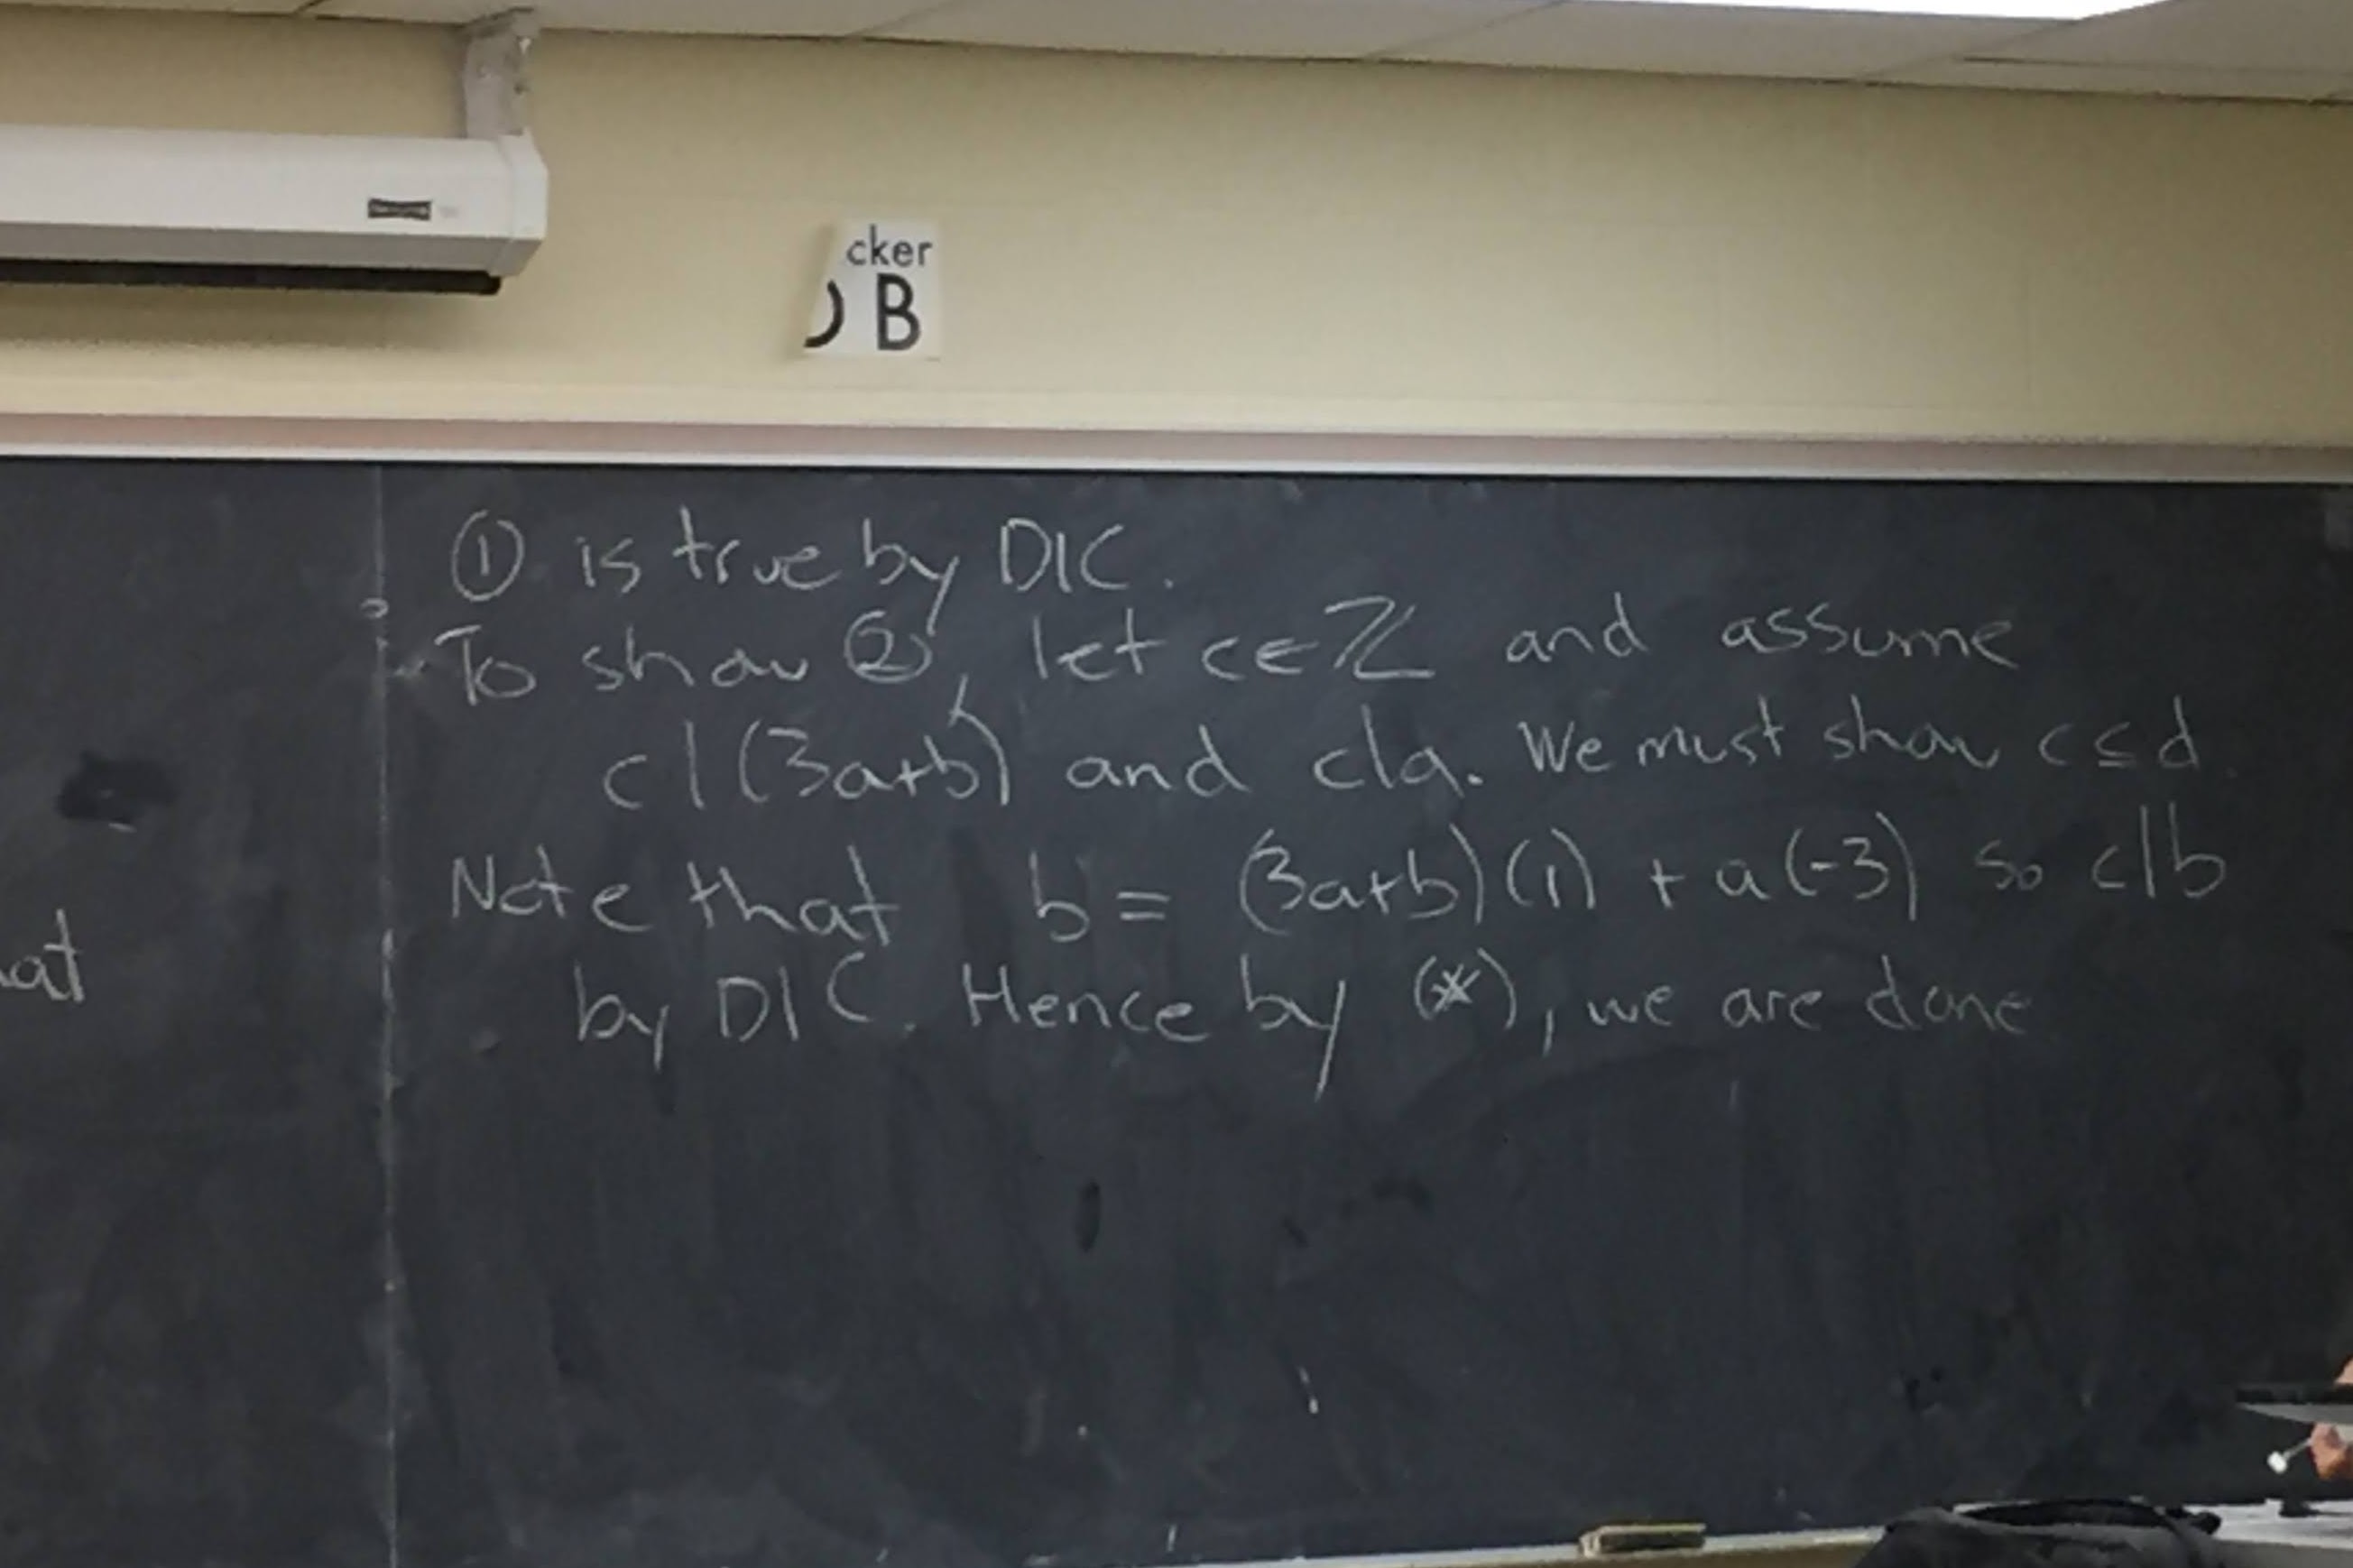 cker
B
① is true by DIC.
To show ②, let c∈ℤ and assume
c|(3a+b) and c|a. We must show c≤d.
Note that b = (3a+b)(1) + a(-3) so c|b
by DIC. Hence by (*), we are done
at